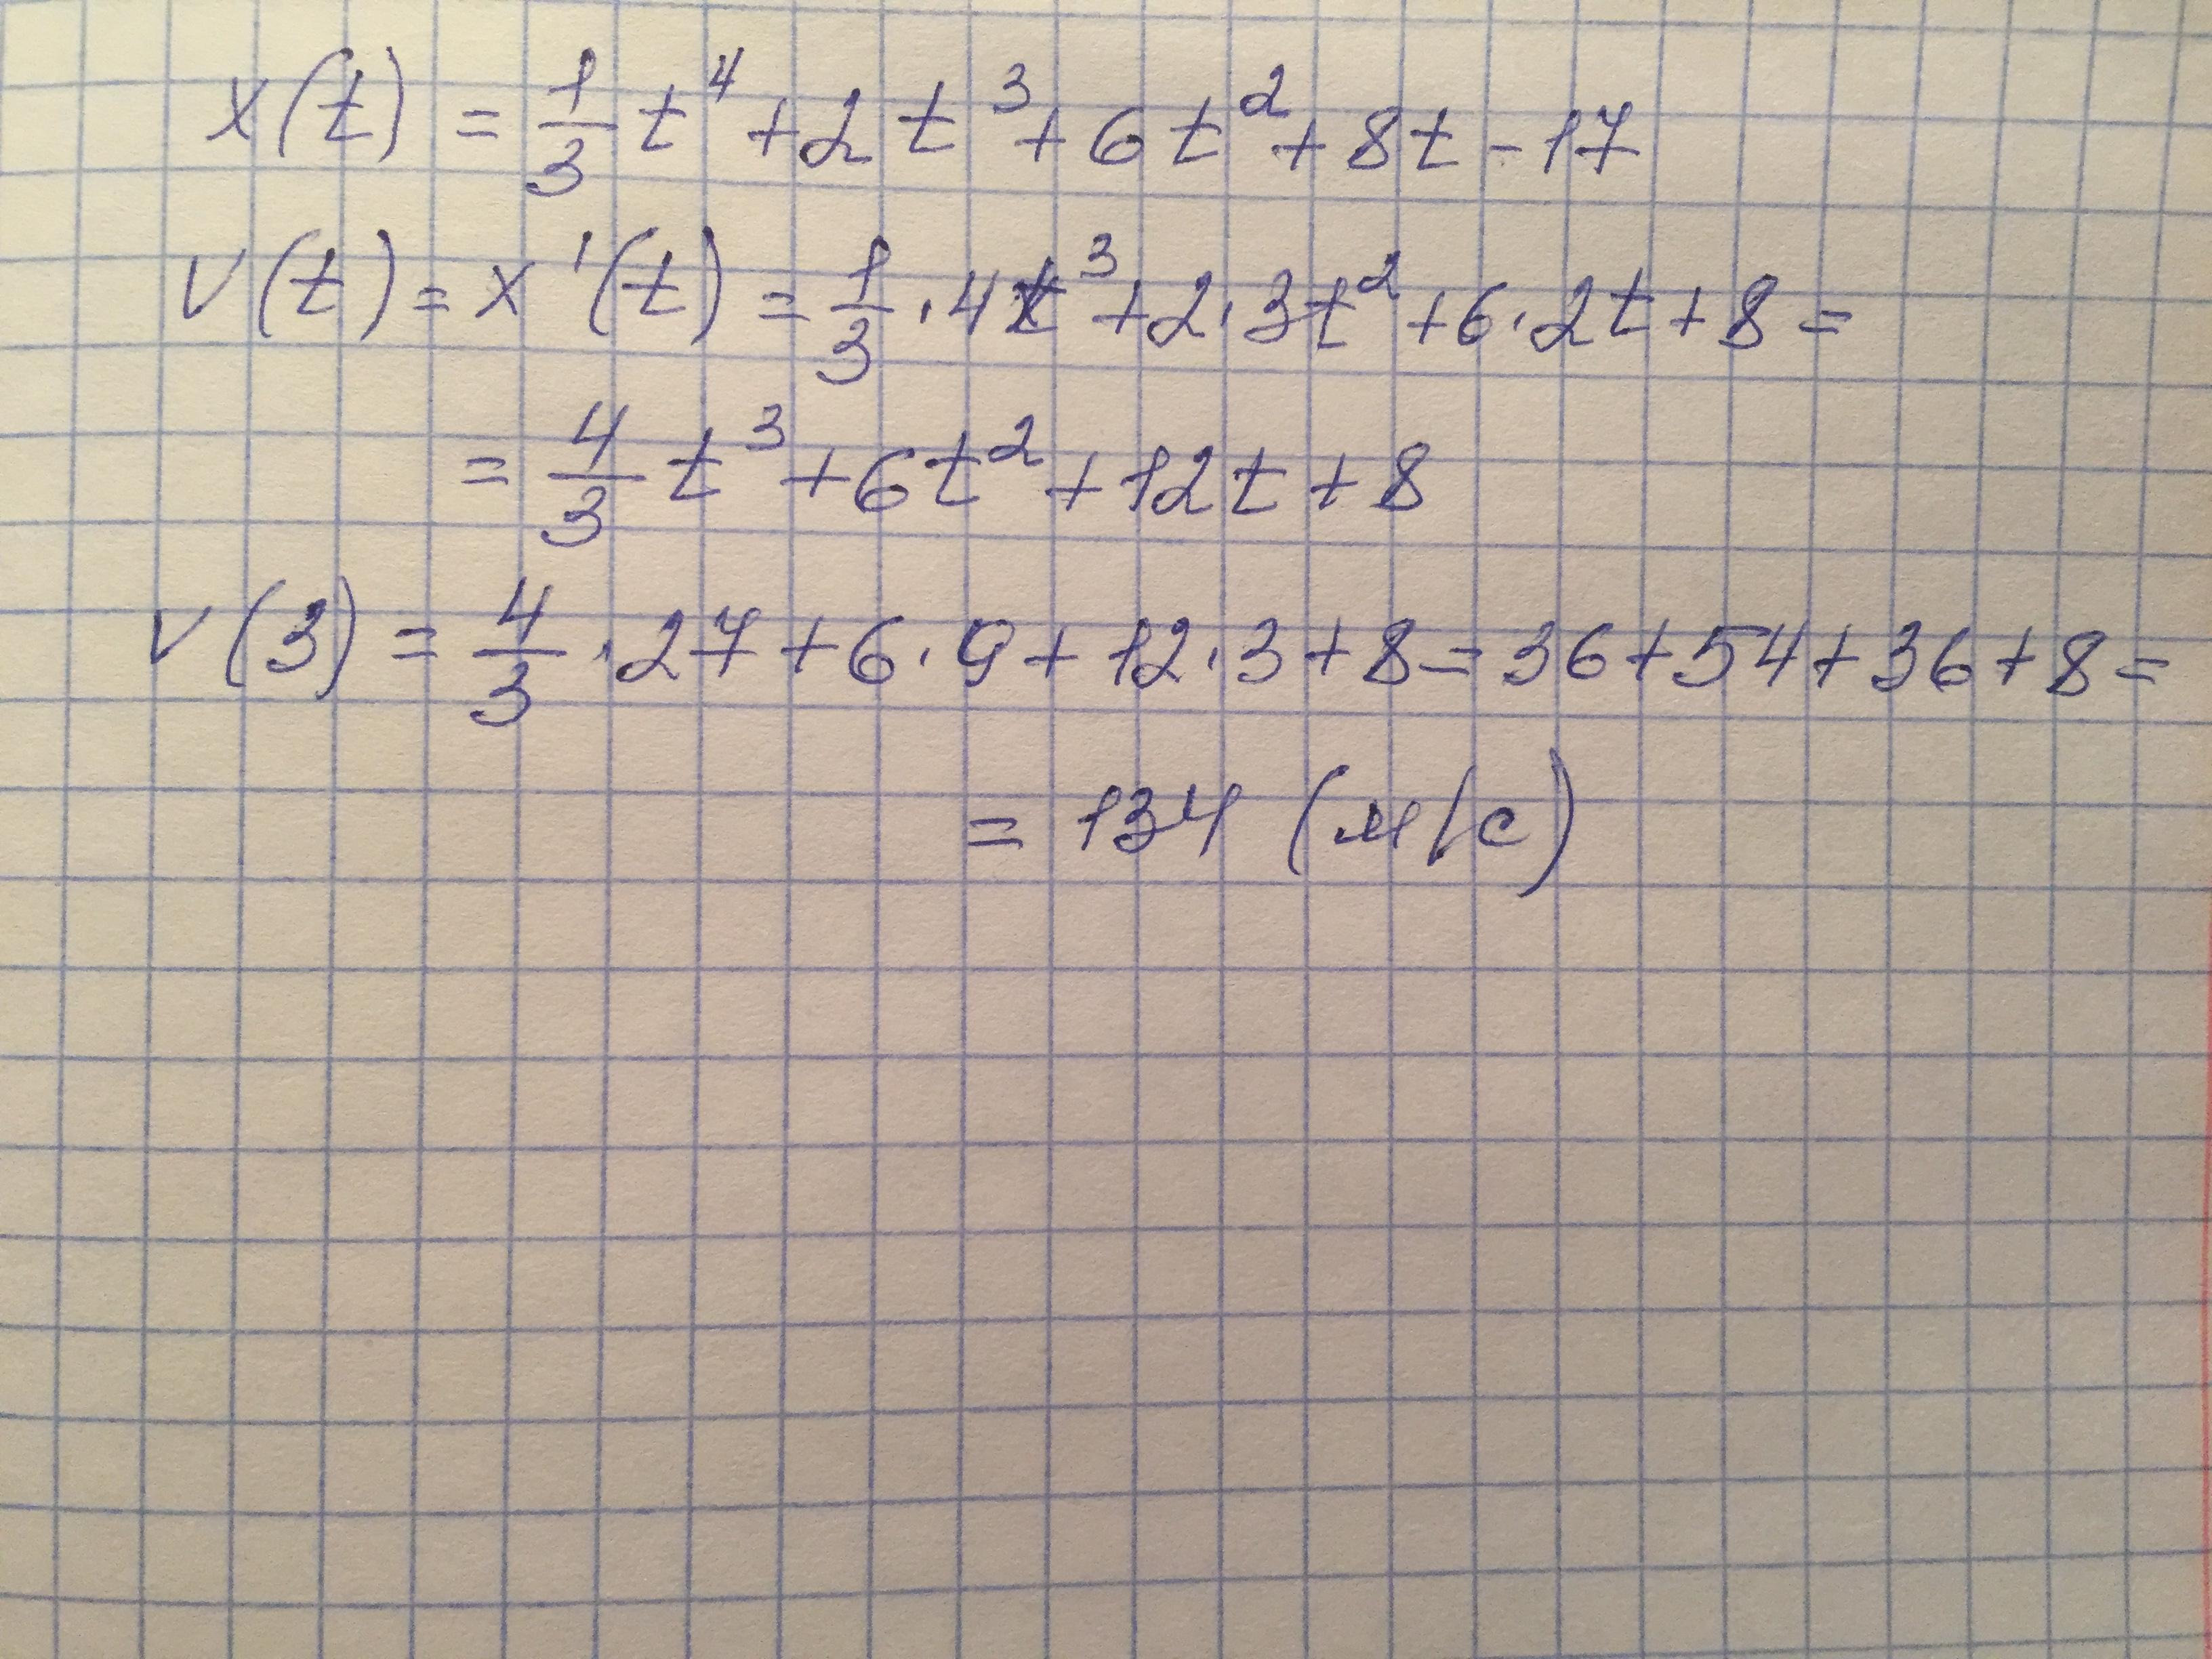 x(t) = 1/3 t⁴ + 2t³ + 6t² + 8t - 17
v(t) = x'(t) = 1/3 · 4t³ + 2 · 3t² + 6 · 2t + 8 =
= 4/3 t³ + 6t² + 12t + 8
v(3) = 4/3 · 27 + 6 · 9 + 12 · 3 + 8 = 36 + 54 + 36 + 8 =
= 134 (м/с)